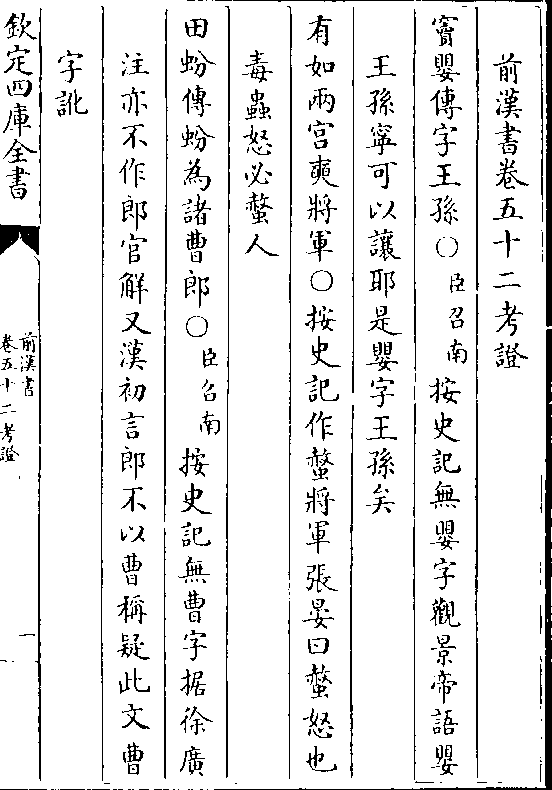 前漢書卷五十二考證
竇嬰傳字王孫○臣召南按史記無嬰字觀景帝語嬰
王孫寧可以讓耶是嬰字王孫矣
有如兩宮奭將軍○按史記作螫將軍張晏曰螫怒也
毒蟲怒必螫人
田蚡傳蚡為諸曹郎○臣召南按史記無曹字据徐廣
注亦不作郎官解又漢初言郎不以曹稱疑此文曹
字訛
欽定四庫全書
前漢書
卷五十二考證
一